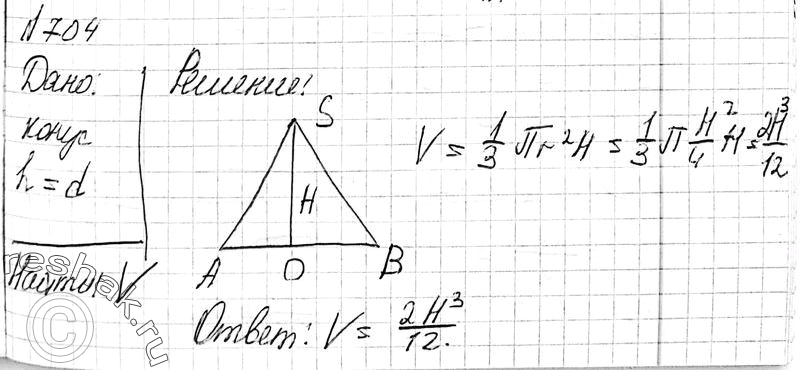 №704
Дано:
конус
h = d
Найти: V
Решение:
S
H
A O B
V = 1/3 πr²H = 1/3 π H²/4 · H = 2H³/12
Ответ: V = 2H³/12.
reshak.ru